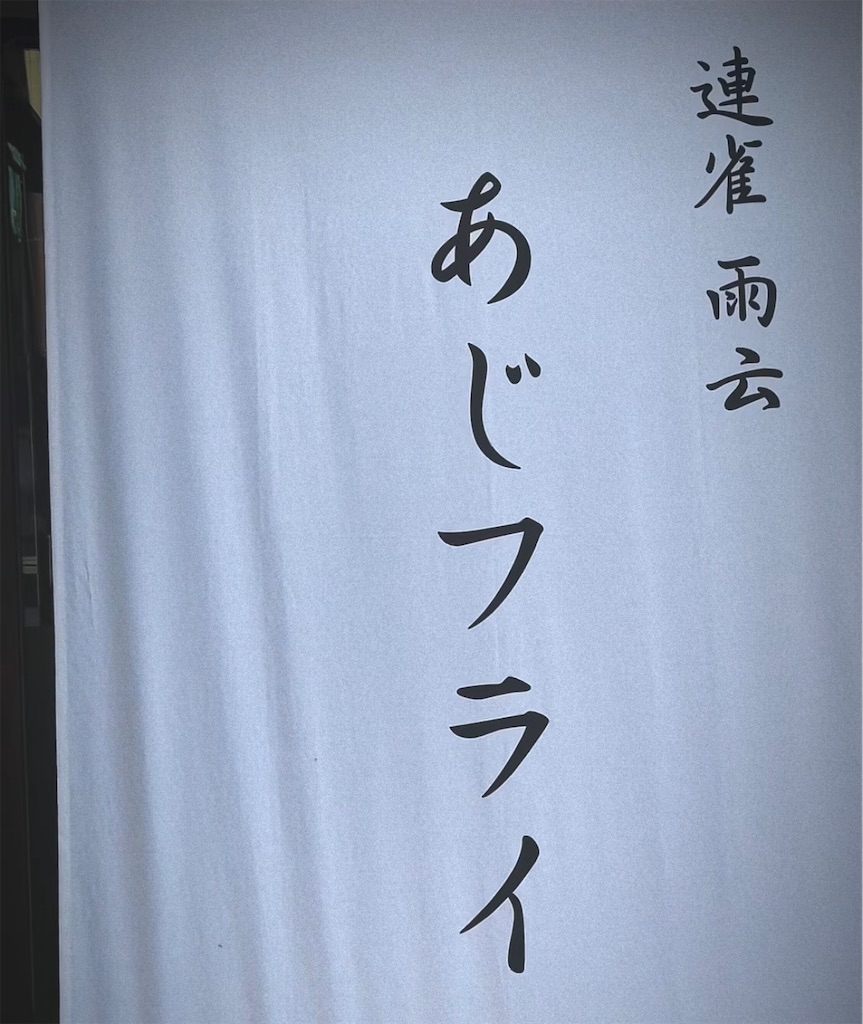 連雀 雨云
あじフライ